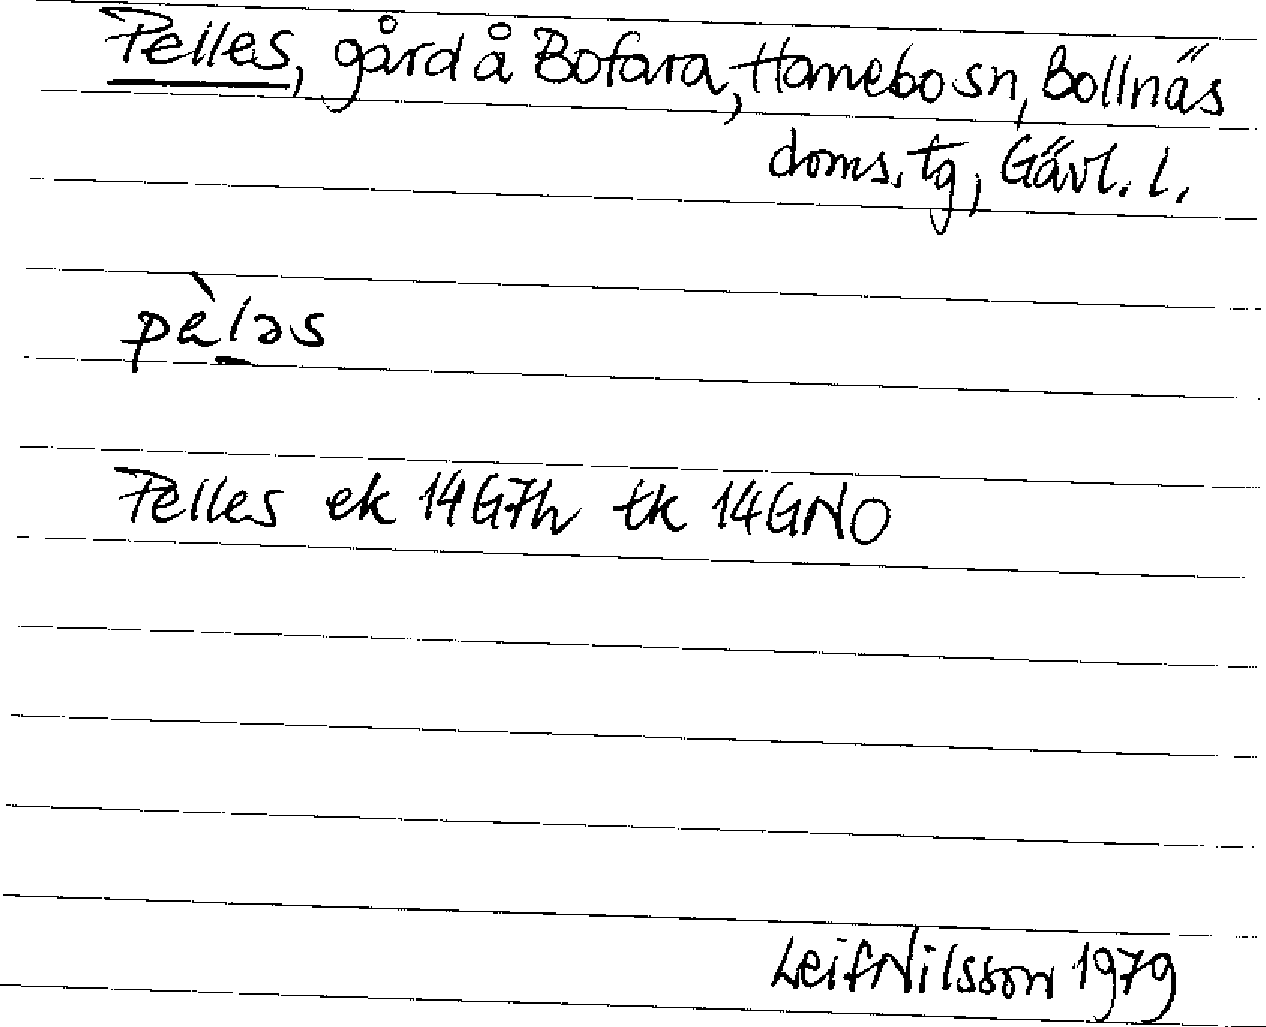 Pelles, gård å Bofara, Hanebo sn, Bollnäs
doms. tg, Gävl. l.
pèl̲əs
Pelles ek 14G7h tk 14GNO
Leif Nilsson 1979